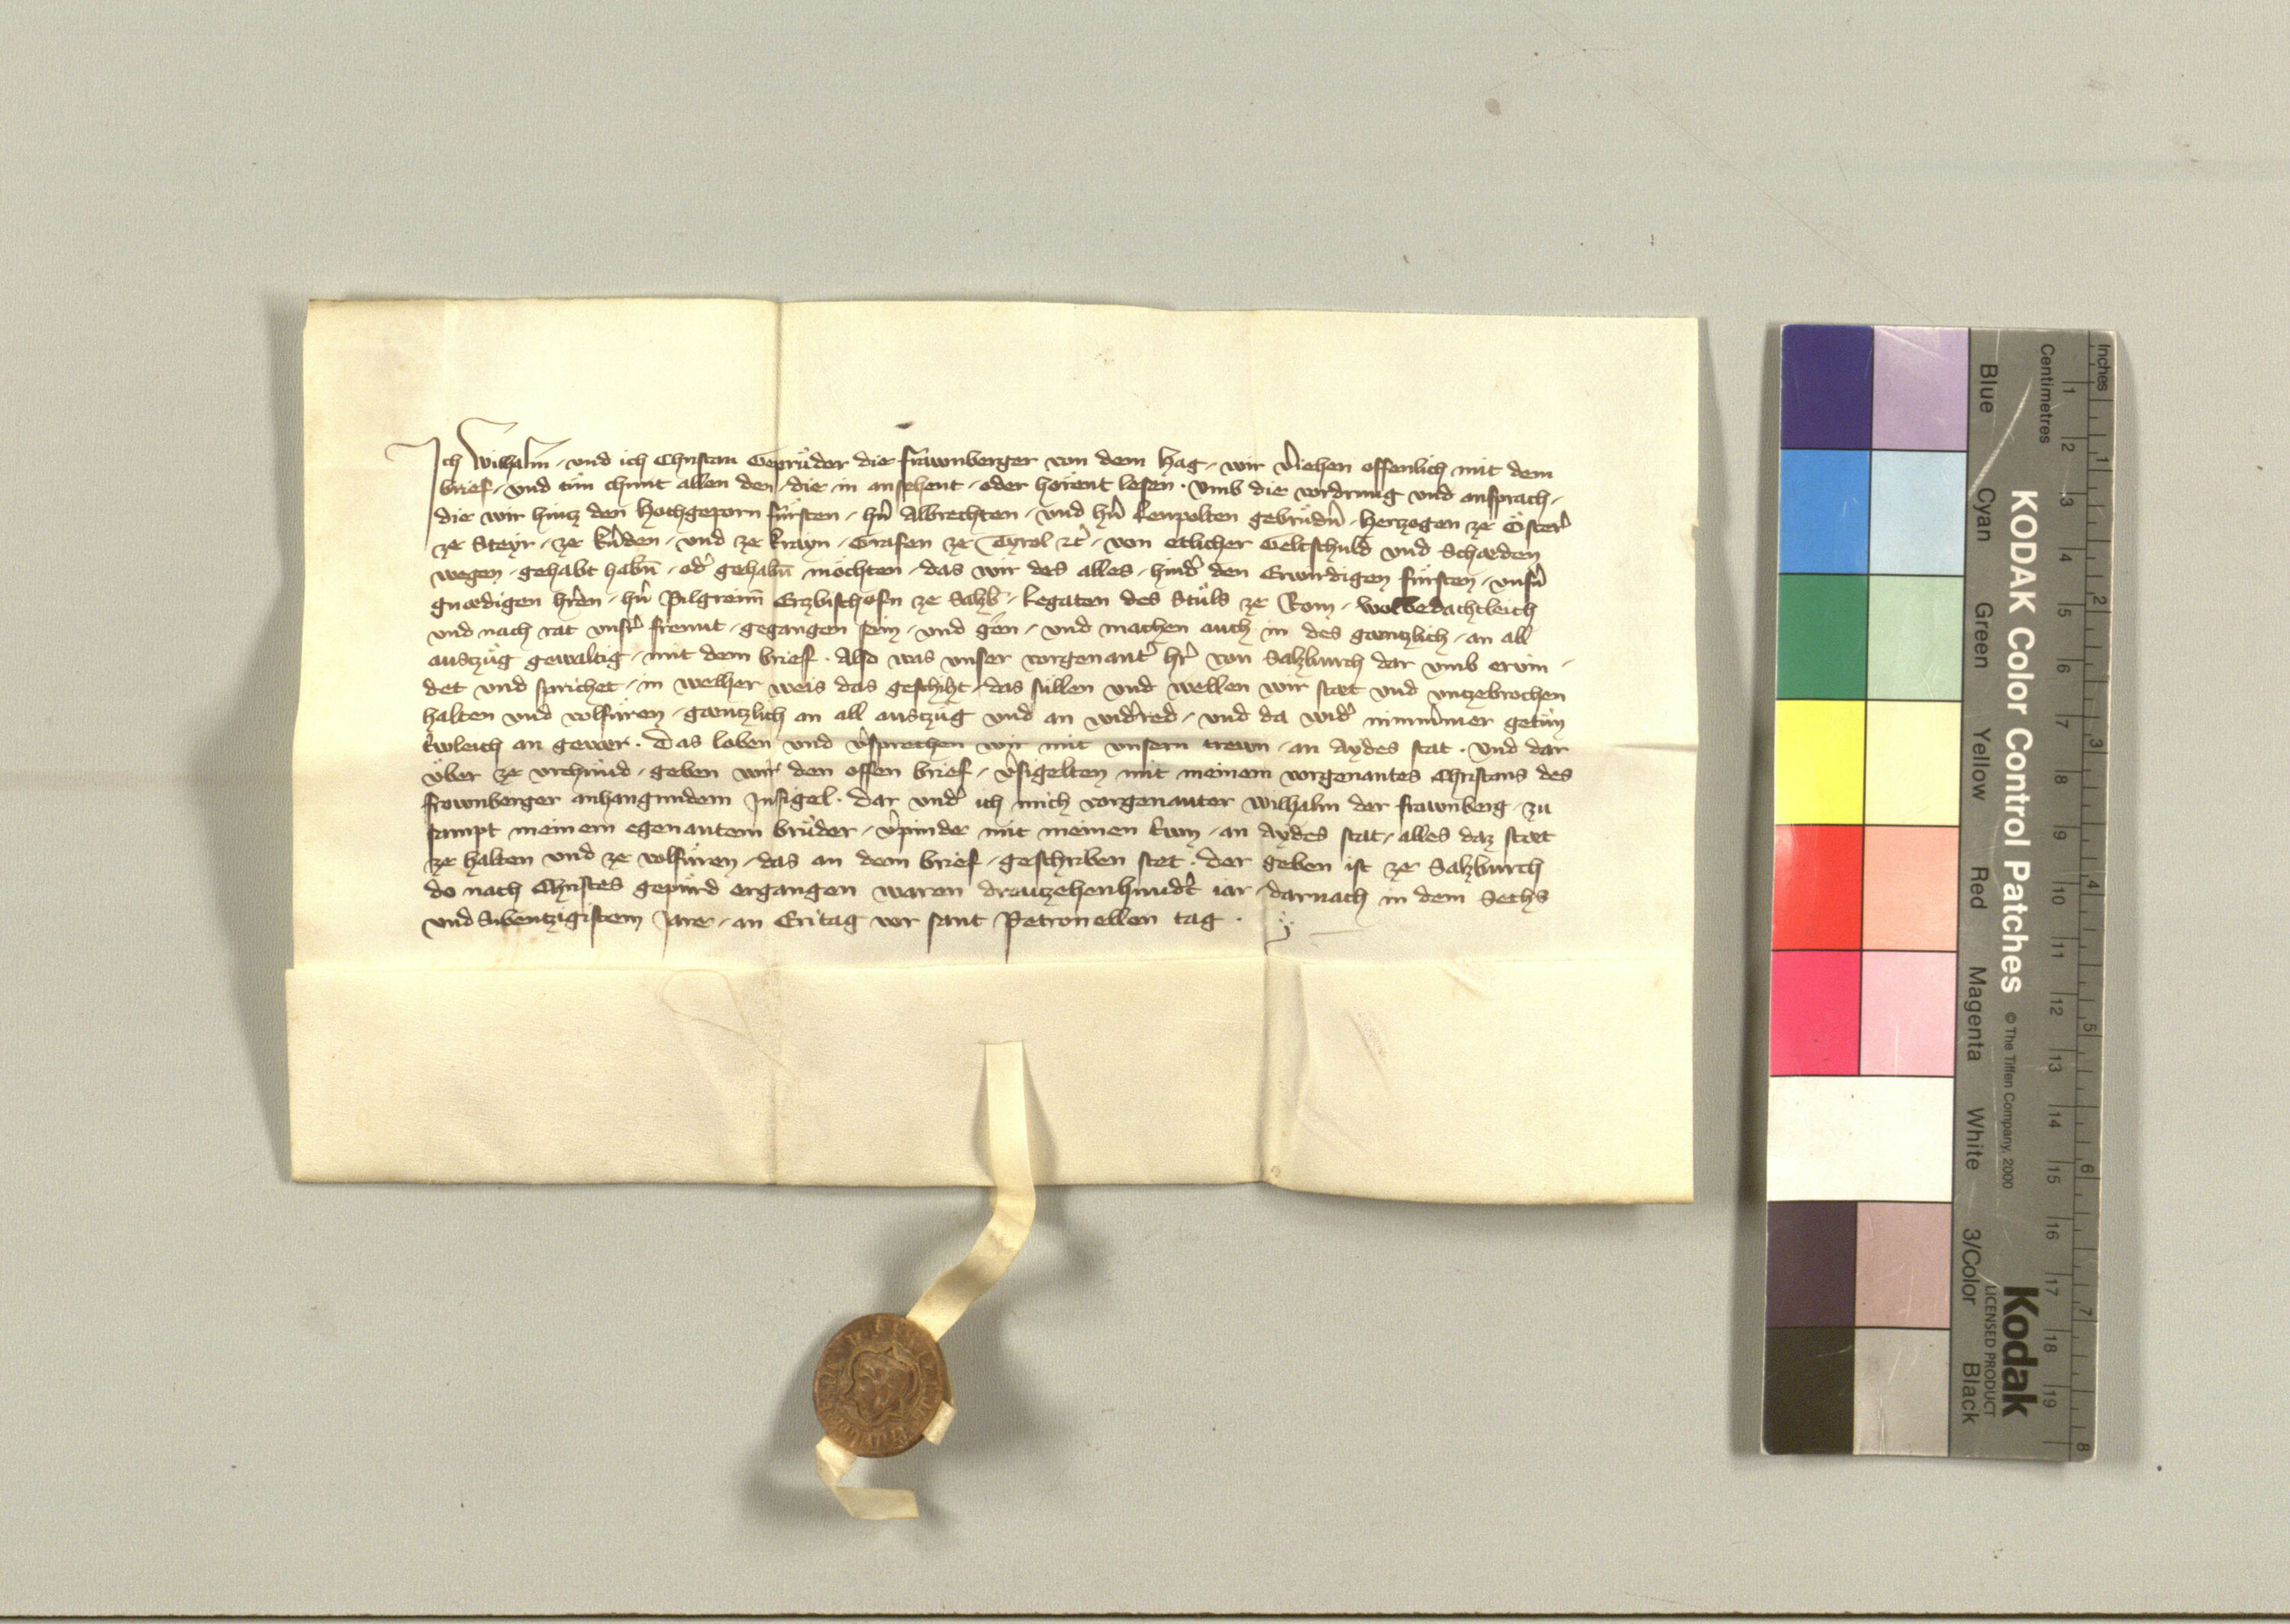 Ich Wilhalm und ich Christan Geprüder die frawnberger von dem Hag, wir v̂iehen offenlich mit dem
brief, und tün chunt allen den, die in ansehent, oder hörent lesen. Umb die vordrung und ansprach,
die wir hincz den Hochgeporn fürsten, hn̂ Albrechten, und hn̂ Leupolten gebrüdn̂, Herczogen ze Österˀ
ze Steyr, ze kn̂den, und ze krayn, Grafen ze Tyrol etcˀ, von etlicher Geltschuld und Schæden
wegen, gehabt habn̄, odˀ gehabn̄ möchten, das wir des alles, hindˀ den Erwirdigen fürsten, unsn̂
gnædigen hr̂en, hn̂ Pilgreim̄ Erzbischofn ze Salzb̄, Legaten des Stuls ze Rom, wolbedachtleich
und nach rat unsrˀ freunt, gegangen sein, und gen, und machen auch in des gæntzlich, an all
auszüg gewaltig, mit dem brief. Also was unser vorgenantˀ hrˀ von Salzburch dar umb ervin-
det und sprichet, in welher weis das geschiht, das süllen und wellen wir stæt und unzebrochen
halten und volfüren, gæntzlich an all auszüg und an widˀred, und da widˀ nimm̂mer getün
trˀwleich an gevær. Das loben und vˀsprechen wir mit unsern trewn, an Aydes stat. Und dar
über ze urchünd, geben wir den offen brief, vˀsigelten mit meinem vorgenantes Christans des
frawnberger anhangundem Insigel. dar undˀ ich mich vorgenanter Wilhalm der frawnberg, zu
sampt meinem egenantem brüder, vˀpinde mit meinen trˀwn, an Aydes stat, alles daz stæt
ze halten und ze volfüren, das an dem brief, geschriben stet. der geben ist ze Salzburch
do nach Christes gepürd ergangen waren dreuzehenhundˀt iar, darnach in dem Sechs
und Sibentzigistem Jare, an Eritag vor sant Petronellen tag.
KODAK Color Control Patches
© The Tiffen Company, 2000
Kodak
LICENSED PRODUCT
Blue Cyan Green Yellow Red Magenta White 3/Color Black
Inches 1 2 3 4 5 6 7 8
Centimetres 1 2 3 4 5 6 7 8 9 10 11 12 13 14 15 16 17 18 19